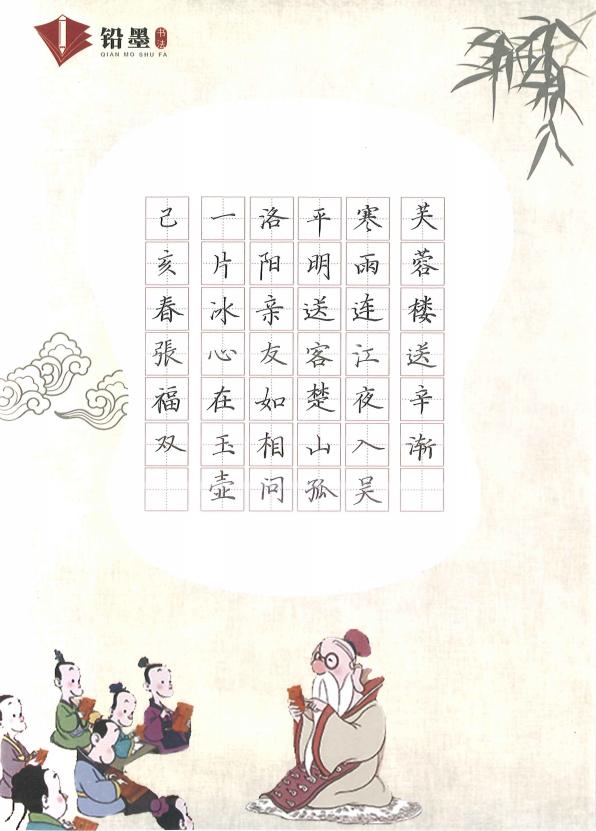 铅墨
书法
QIAN MO SHU FA
芙蓉楼送辛渐
寒雨连江夜入吴
平明送客楚山孤
洛阳亲友如相问
一片冰心在玉壶
己亥春張福双